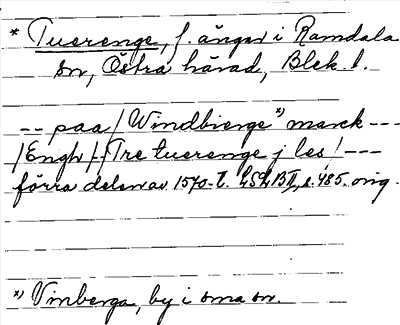 * Tuerenge, f. ängar i Ramdala
sn, Östra härad, Blek. l.
-- paa / Windbierge *) marck ---
/Engh/-/Tre tuerenge j les / ---
förra delen av 1570-t. s. 485. orig.
*) Vinberga, by i sma sn.